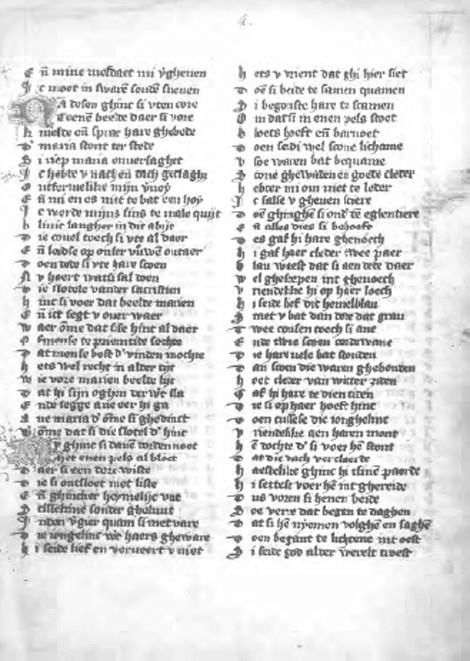 En mine mesdaet mi vgheuen
Ic moet in sware sonde sneuen
NA desen ghinc si vten core
Teene beelde daer si vore
knielde en sprac hare ghebede
D' maria stont ter stede
Si riep maria onuersaghet
Ic hebbe v nach en dach geclaghet
Ontfermelike mijn vnoy
En mi en es niet te bat een hoy
Ic worde mijns sins te male quijt
bliuic langher in dit abijt
Die couel toech si vte al daer
En leidse op onser vrouwen outaer
Doen dede si vte hare scoen
Nv hoert watsi sal doen
Die slotele vander sacristien
hinc si voer dat beelde marien
En ic segt v ouer waer
Waer ome dat sise hinc al daer
Ofmense te priemtide sochte
Datmense best d' vinden mochte
hets wel recht in alder tijt
Wie vore marien beelde lijt
Dat hi sijn oghen derwert sla
Ende segge aue eer hi ga
Aue maria d'ome si ghedinct
Waer ome dat si die slotel d' hinc
NV ghinc si dane dorden noet
Met enen pels al bloet
Daer si een dore wiste
Die si ontsloet met liste
En ghincker heymelijc vut
Stillekine sonder gheluut
Inden vgier quam si met vare
Die iongelinc wert haers gheware
hi seide lief en verveert v niet
hets v vrient dat ghi hier siet
Doe si beide te samen quamen
Si begonste hare te scamen
Om datsi in enen pels stoet
bloets hoeft en baruoet
Doen seidi wel scone lichame
V soe waren bat bequame
Scone ghewaden en goede cleder
hebter mi om niet te leder
Ic salse v gheuen sciere
Doe ghinghe si onder de eglentiere
En alles dies si behoeft
Des gaf hi hare ghenoech
hi gaf haer cleder twee paer
blau weest dat si aen dede daer
Wel ghescepen int ghenoech
Vriendelike hi op haer loech
hi seide lief dit hemelblau
Staet v bat dan dede dat grau
Twee cousen toech si ane
Ende twee scoen cordewane
Die hare vele bat stonden
Dan scoen die waren ghebonden
hoet cleder van witter ziden
Gaf hi hare te dien tiden
Die si op haer hoeft hinc
Doen cussese die iongelinc
Vriendelike aen haren mont
he dochte d' si voer he stont
Dat die dach verclaerde
haestelike ghinc hi tsinen paerde
hi settese voer he int ghereide
Dus voren si henen beide
Soe verre dat began te daghen
Dat si he nyemen volghen saghe
Doen began te lichtene int oest
Si seide god alder werelt troest